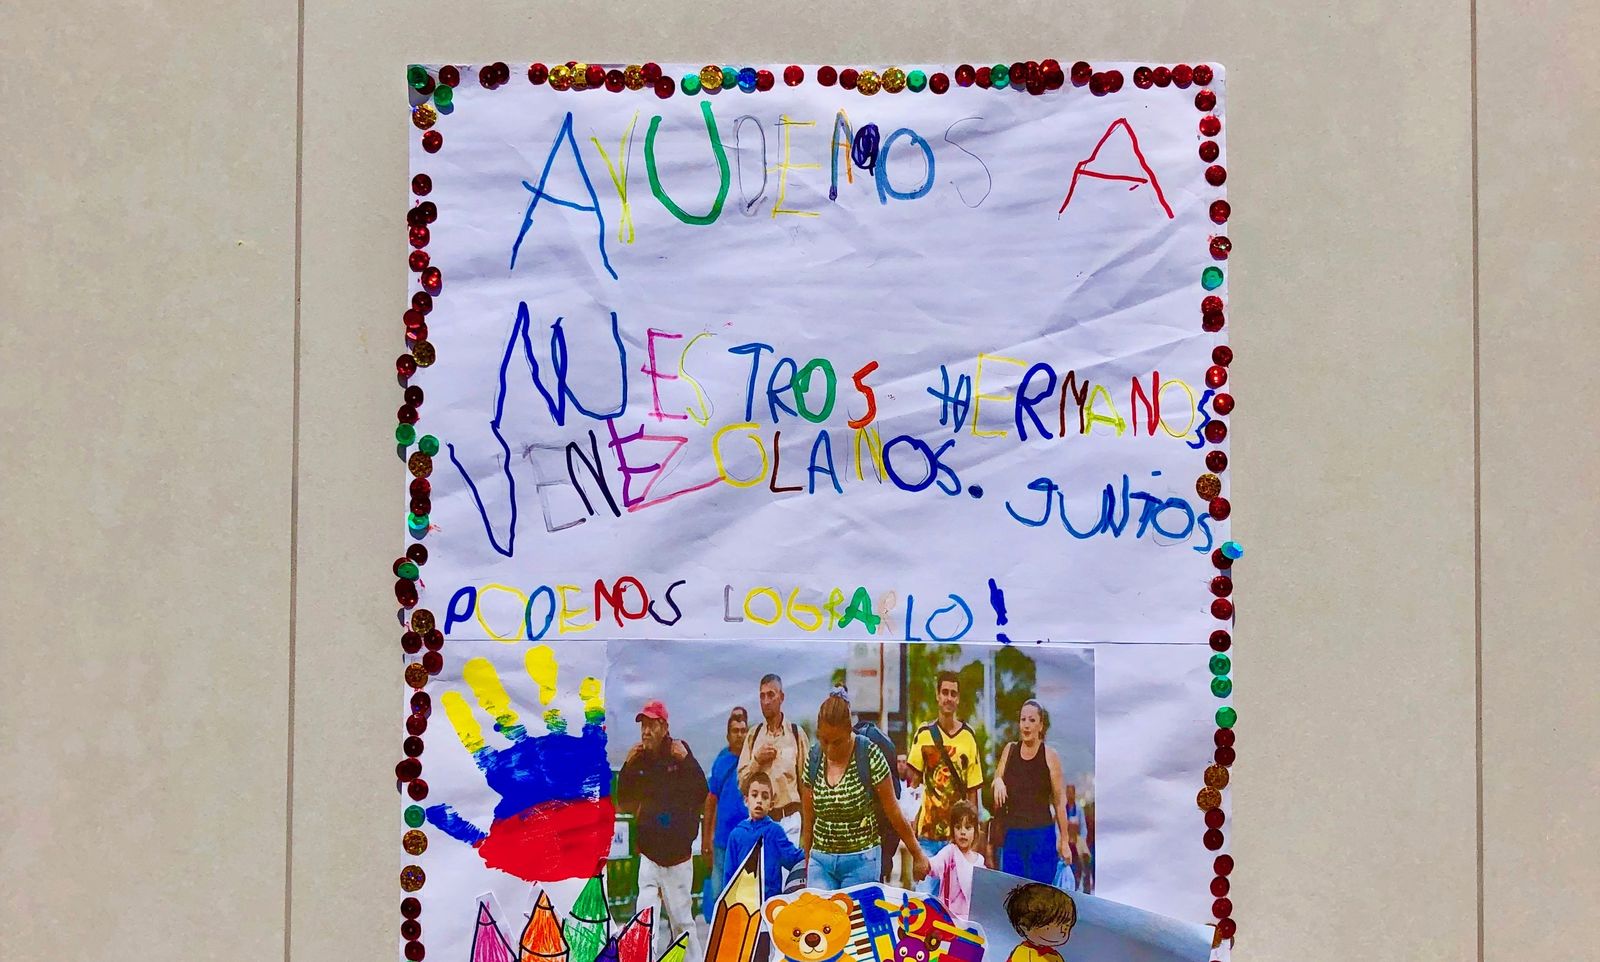 AYUDEMOS A
NUESTROS HERMANOS
VENEZOLANOS. JUNTOS
PODEMOS LOGRARLO!